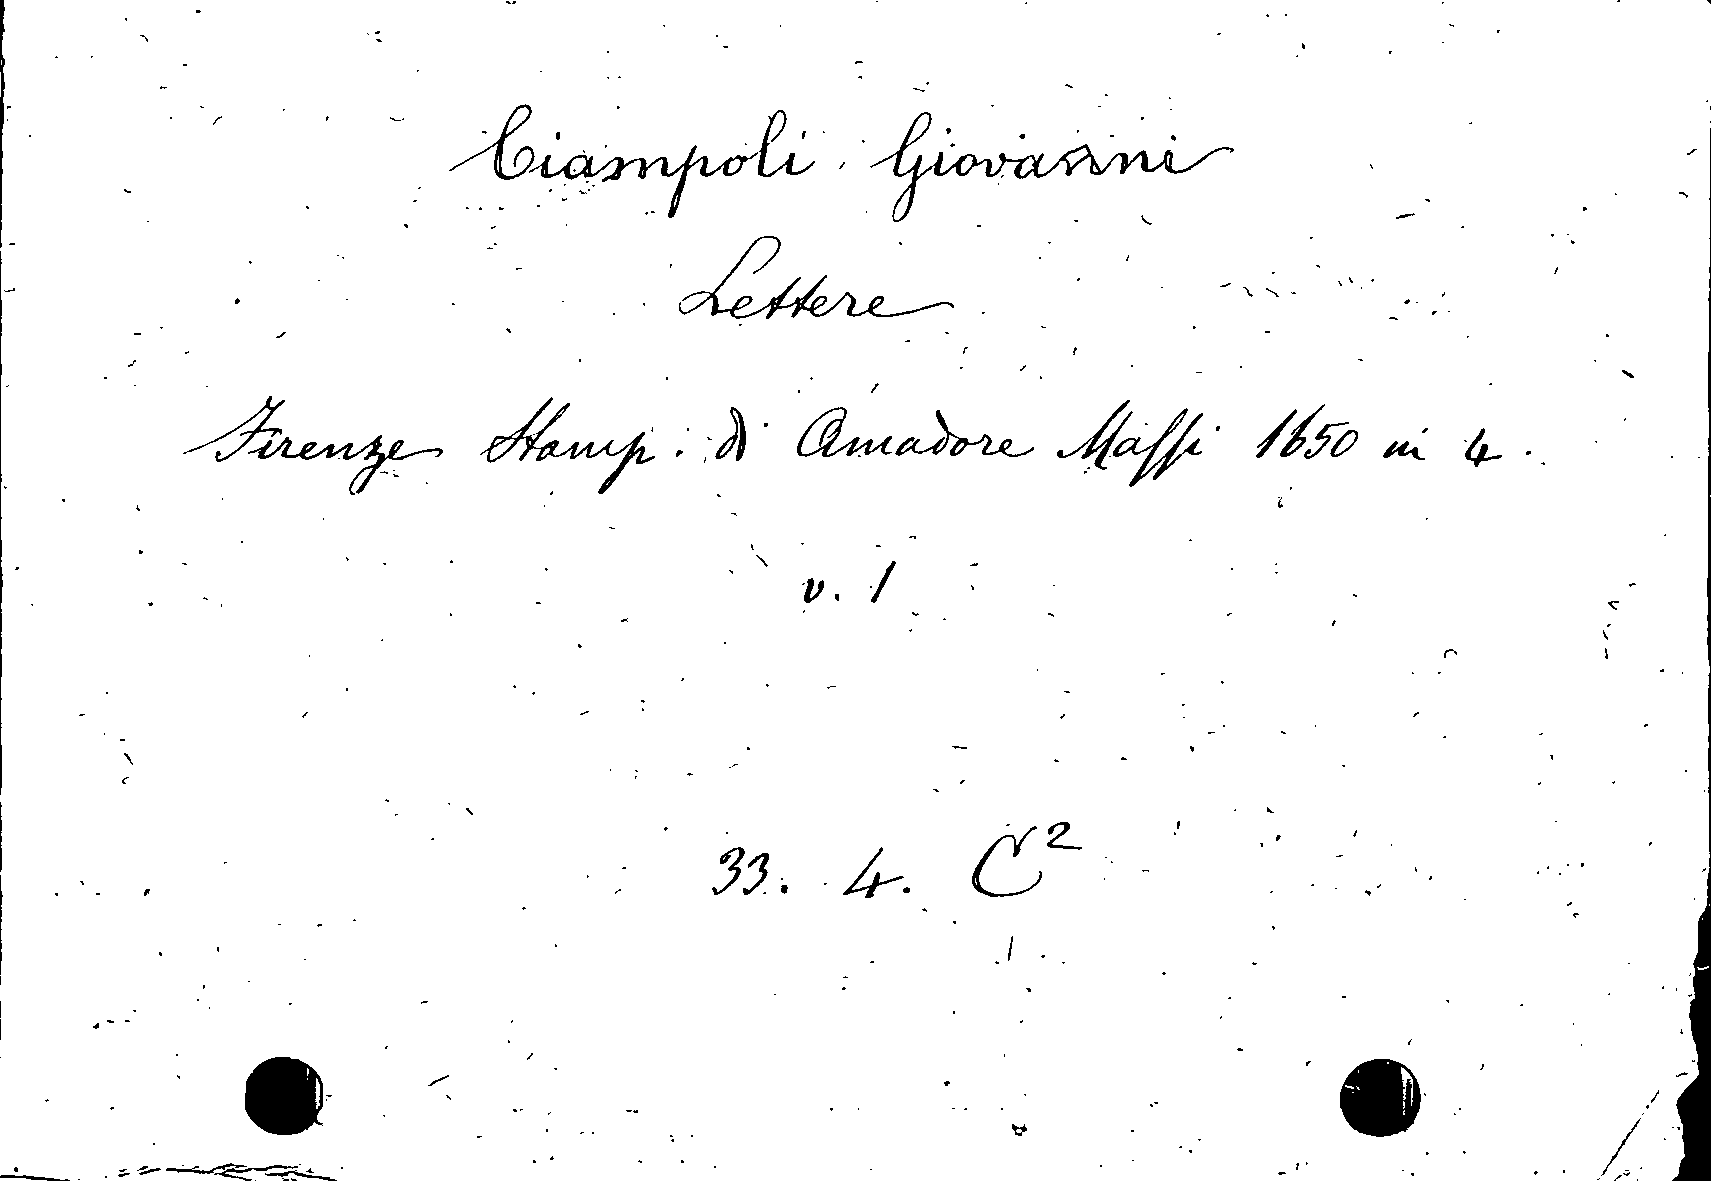 Ciampoli Giovanni
Lettere
Firenze Stamp. di Amadore Massi 1650 in 4.
v. 1
33. 4. C²